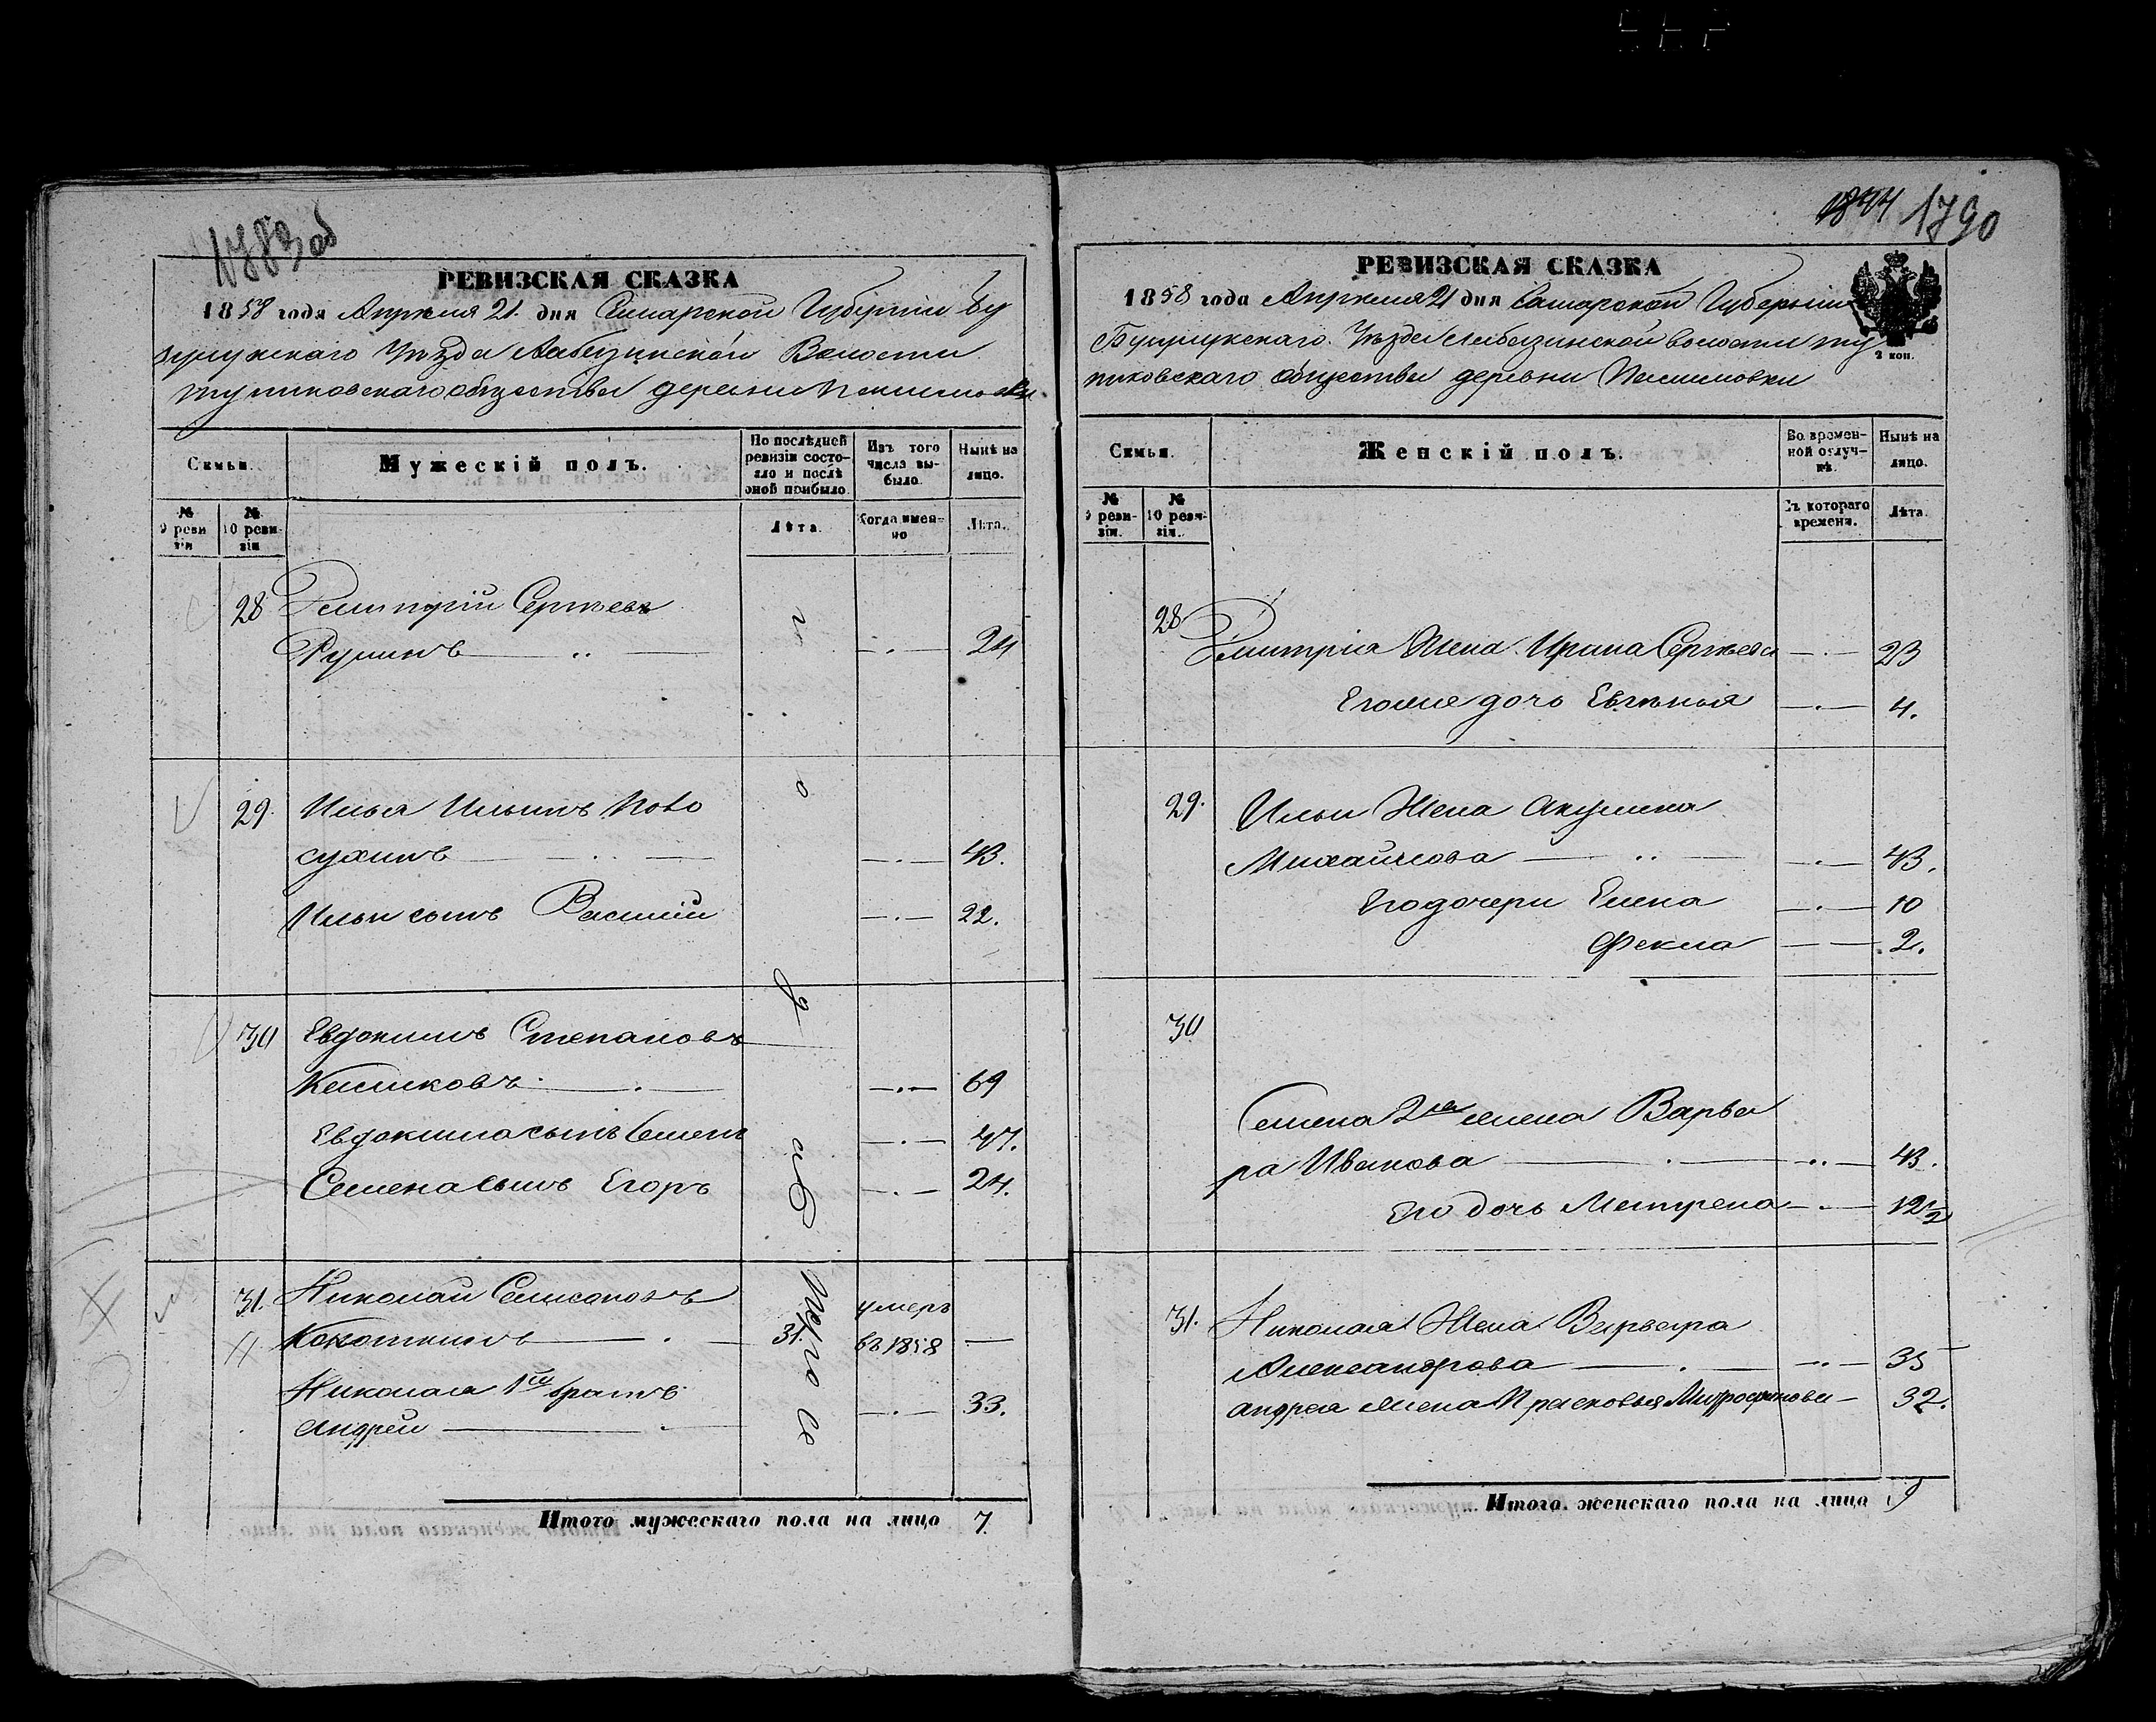 1783 об
РЕВИЗСКАЯ СКАЗКА
1858 года Апреля 21 дня Самарской Губернiи Бу
зулукскаго Уѣзда Лабазинской Волости
тупиковскаго общества деревни
Семьи.
Мужескiй полъ.
По послѣдней ревизiи состояло и послѣ оной прибыло.
Изъ того числа выбыло.
Нынѣ на лицо.
№ 9 ревизiи
№ 10 ревизiи
Лѣта.
Когда именно
Лѣта.
28 Дмитрiй Сергѣевъ
24
29. Илья Ильинъ Ново
сухинъ 43.
Ильи сынъ Василiй 22.
30 Евдокимъ Степановъ
69
Евдокима сынъ Семенъ 47.
Семена сынъ Егоръ 24.
31. Николай Самсоновъ умеръ
Кокоткинъ 31. въ 1858 —
Николая 1й братъ
Андрей 33.
Итого мужескаго пола на лицо 7.
1844 1790
РЕВИЗСКАЯ СКАЗКА
1858 года Апреля 21 дня Самарской Губернiи
2 коп.
Бузулукскаго Уѣзда Лабазинской волости ту
пиковскаго общества деревни
Семьи.
Женскiй полъ.
Во временной отлучкѣ.
Нынѣ на лицо.
№ 9 ревизiи.
№ 10 ревизiи.
Съ котораго времени.
Лѣта.
28
Дмитрiя Жена Ирина Сергѣева 23
Его же дочь Евгѣнья 4.
29. Ильи Жена Акулина
Михайлова 43.
Его дочери Елена 10
Фекла 2.
30
Семена 2я жена Варва
ра Иванова 43.
Его дочь Матрена 12 1/2
31. Николая Жена Варвара
Александрова 35
Андрея жена Прасковья Митрофанова 32.
Итого женскаго пола на лицо 9